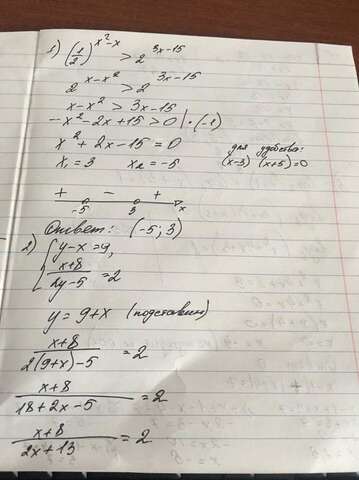 1) (1/2)^(x²-x) > 2^(3x-15)
2^(x-x²) > 2^(3x-15)
x-x² > 3x-15
-x²-2x+15 > 0 | ·(-1)
x²+2x-15=0 для удобства:
x₁=3 x₂=-5 (x-3) (x+5)=0
+ - +
-5 3 x
Ответ: (-5; 3)
2) { y-x=9,
(x+8)/(2y-5) = 2
y = 9+x (подставим)
(x+8)/(2(9+x)-5) = 2
(x+8)/(18+2x-5) = 2
(x+8)/(2x+13) = 2